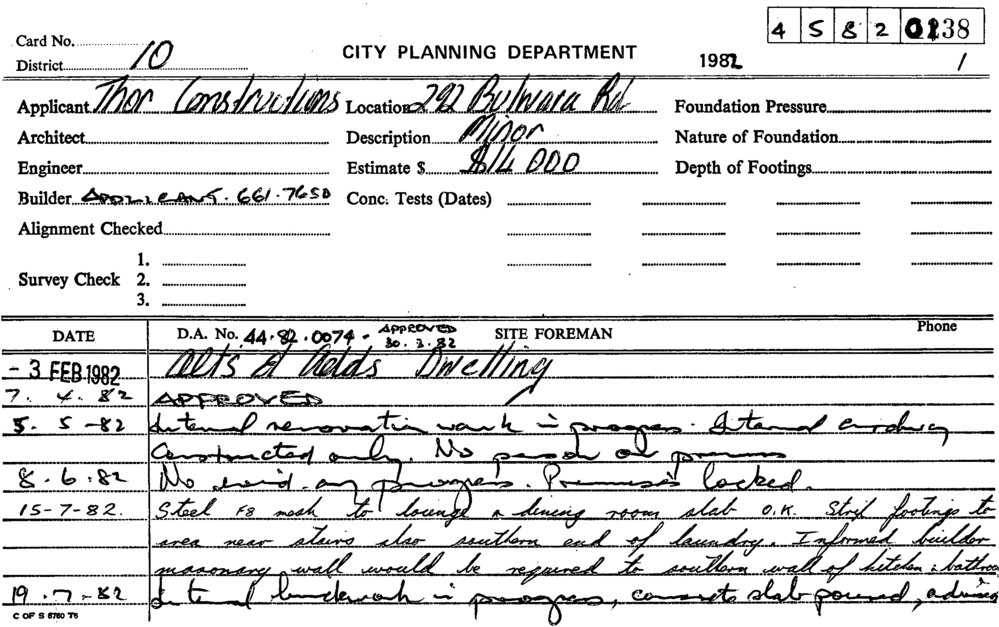 4 5 8 2 0138
Card No.
District 10 CITY PLANNING DEPARTMENT 1982 1
Applicant Thor Constructions Location 292 Bulwara Rd Foundation Pressure
Architect Description Minor Nature of Foundation
Engineer Estimate $ $14 000 Depth of Footings
Builder APPLICANT. 661.7650 Conc. Tests (Dates)
Alignment Checked
1.
Survey Check 2.
3.
DATE D.A. No. 44.82.0074 - APPROVED 30.3.82 SITE FOREMAN Phone
- 3 FEB 1982 Alts & Adds Dwelling
7. 4. 82 APPROVED
5. 5 -82 Internal renovation work in progress. Internal
Constructed only. No person on premises
8.6.82 No any progress. Premises locked.
15-7-82. Steel F8 mesh to lounge & dining room slab O.K. Strip footings to
area near stairs also southern end of laundry. Informed builder
masonary wall would be required to southern wall of kitchen & bathroo
19.7-82 Internal brickwork in progress, concrete slab poured, advised
C OF S 6760 T6